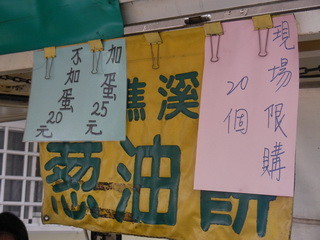 加蛋25元
不加蛋20元
礁溪
葱油餅
現場限購
20個